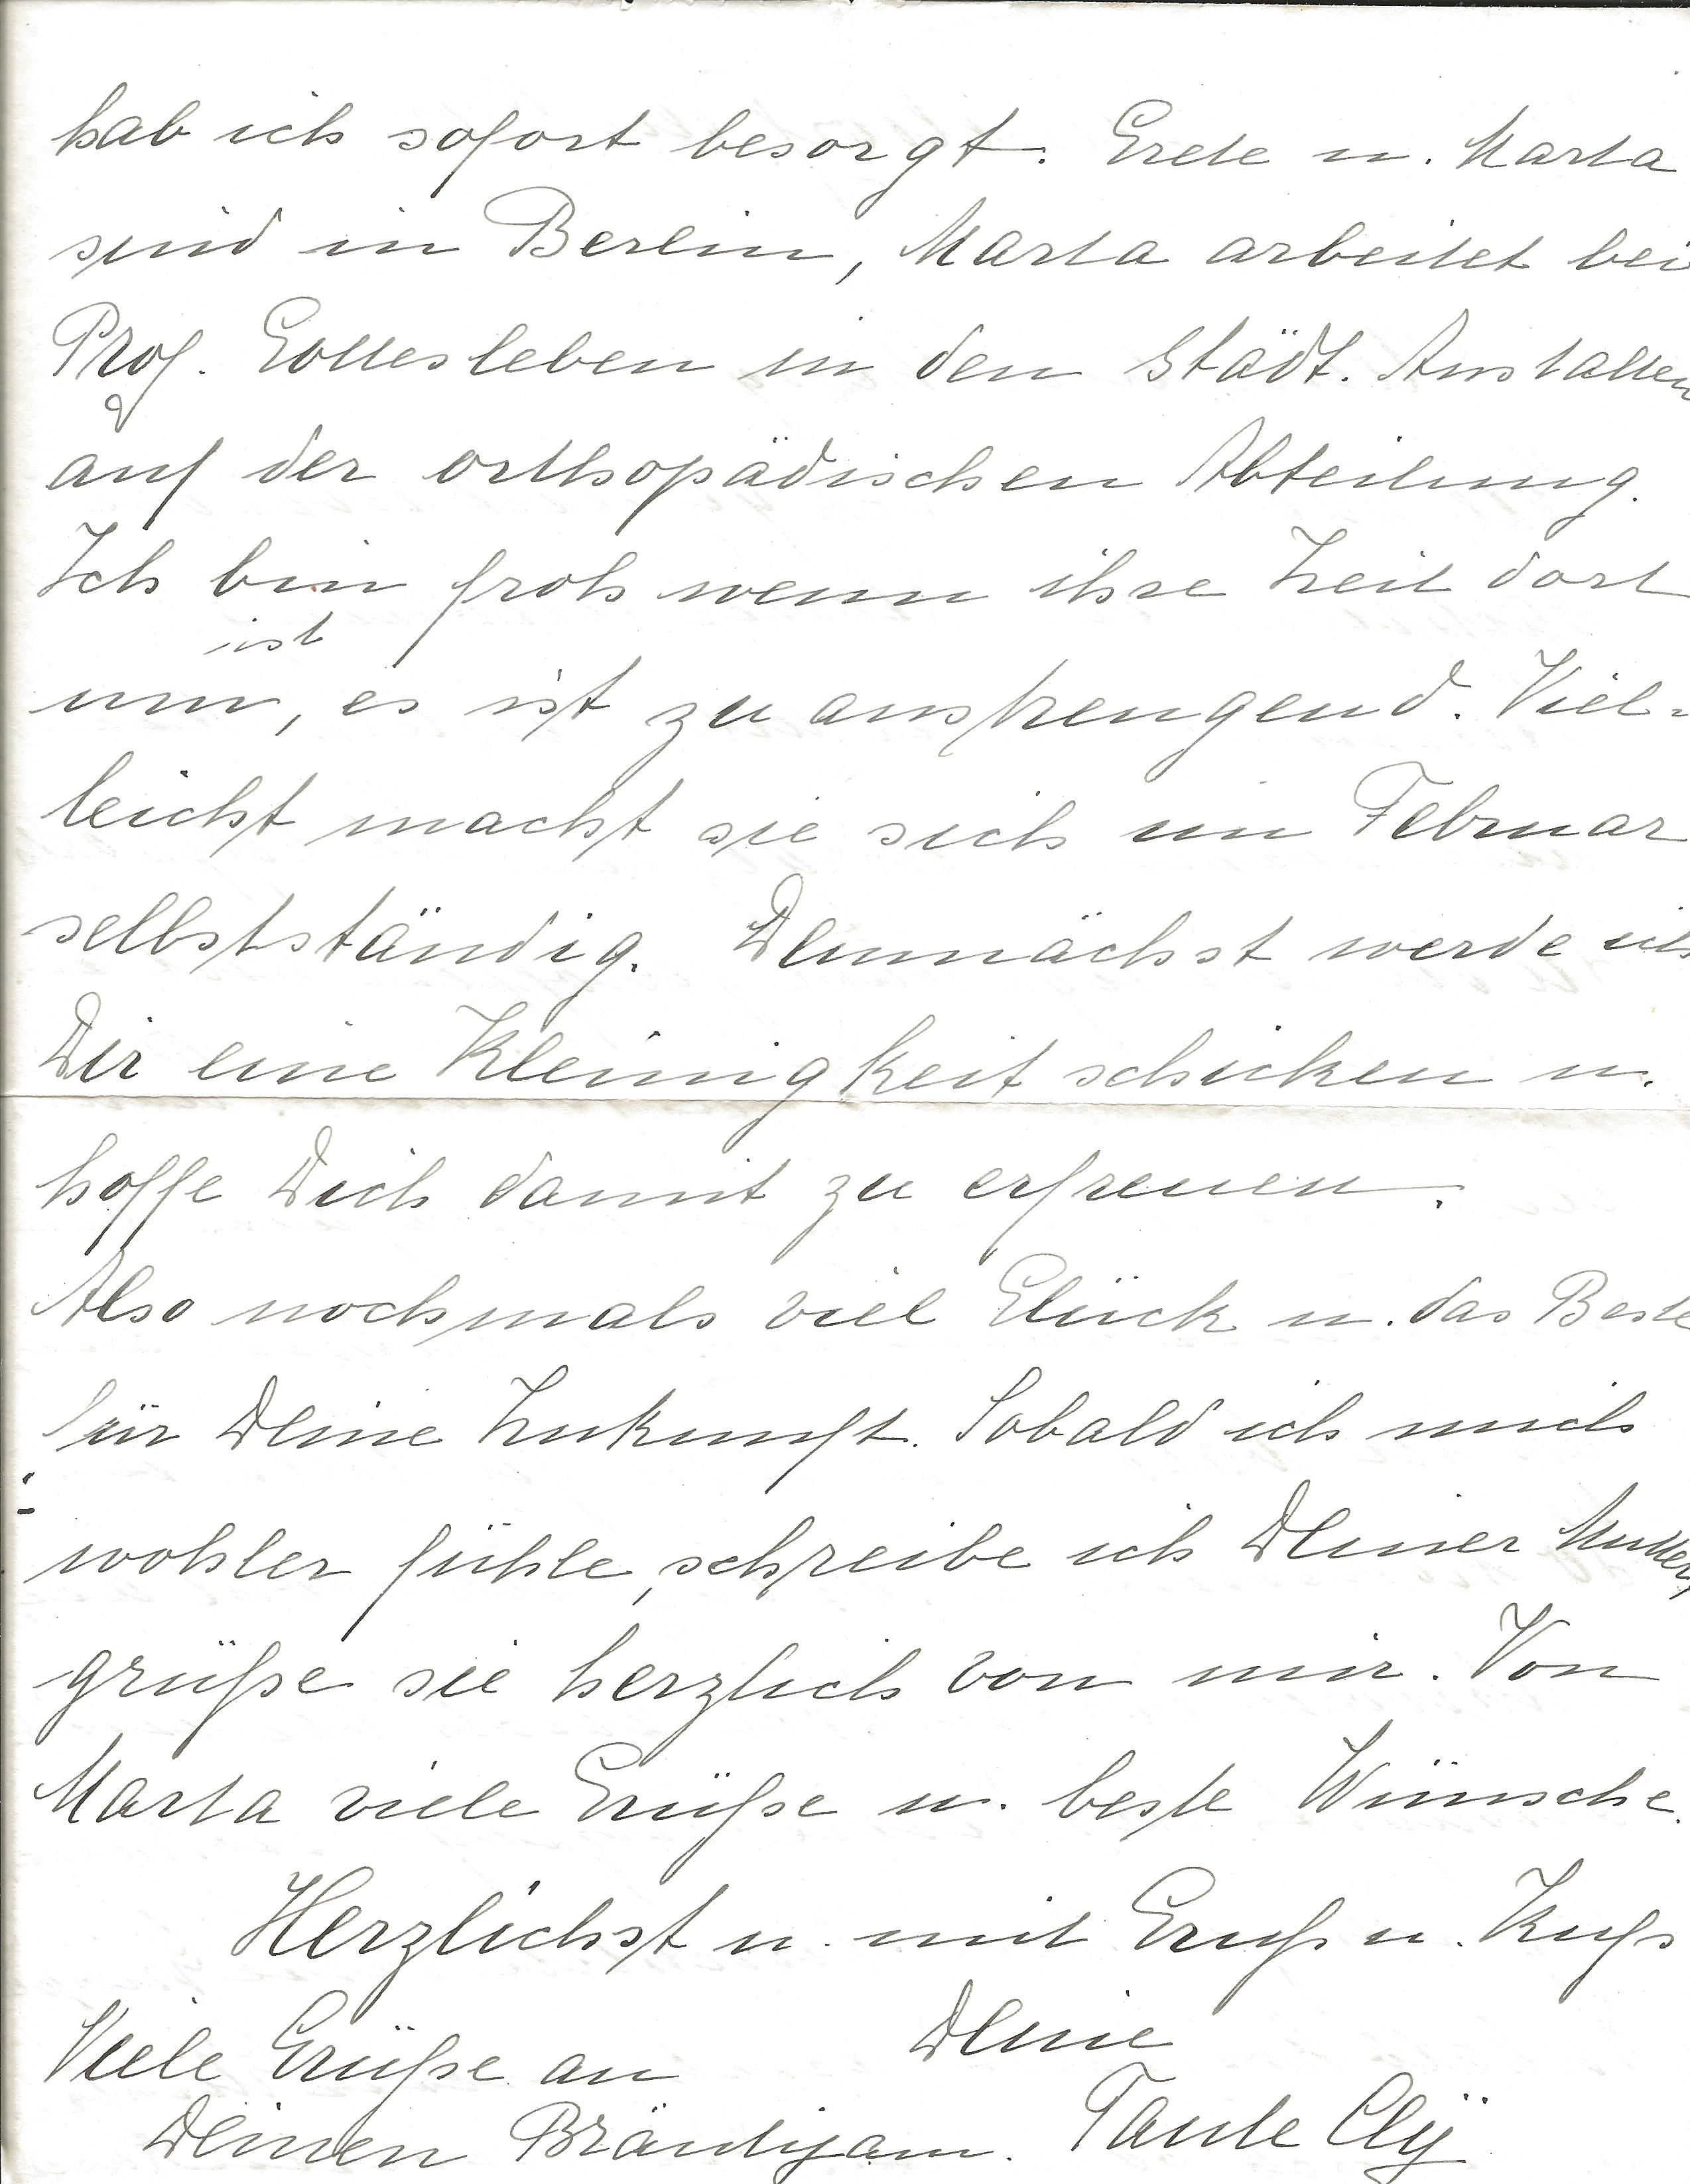 hab ich sofort besorgt. Grete u. Marta
sind in Berlin, Marta arbeitet bei
Prof. Gottesleben in den Städt. Anstalten
auf der orthopädischen Abteilung.
Ich bin froh wenn ihre Zeit dort
ist
um, es ist zu anstrengend. Viel-
leicht macht sie sich im Februar
selbstständig. Demnächst werde ich
Dir eine Kleinigkeit schicken u.
hoffe Dich damit zu erfreuen.
Also nochmals viel Glück u. das Beste
für Deine Zukunft. Sobald ich mich
wohler fühle, schreibe ich Deiner Mutter,
grüße sie herzlich von mir. Von
Marta viele Grüße u. beste Wünsche.
Herzlichst u. mit Gruß u. Kuß
Deine
Tante
Viele Grüße an
Deinen Bräutigam.